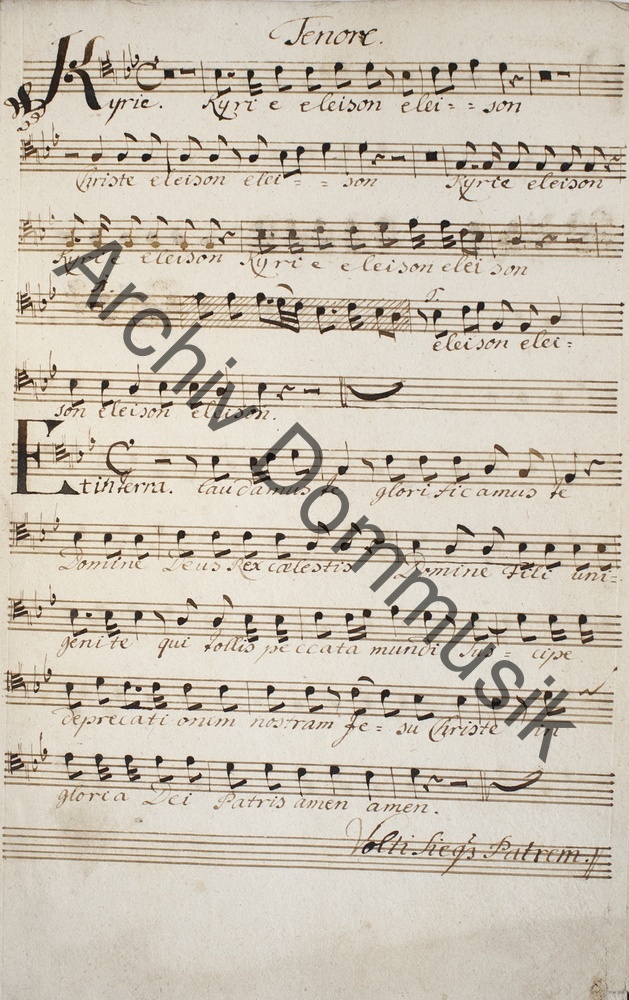 Tenore.
Kyrie. Kyri e eleison elei - - son
Christe eleison elei - - son Kyrie eleison
Kyri e eleison Kyri e eleison elei son
eleison elei =
son eleison eleison.
Et in terra. laudamus te glorificamus te
Domine Deus Rex cælestis Domine Fili uni -
genite qui tollis peccata mundi sus - cipe
deprecati onem nostram Je = su Christe in
gloria Dei Patris amen amen.
Volti Patrem.
Archiv Dommusik